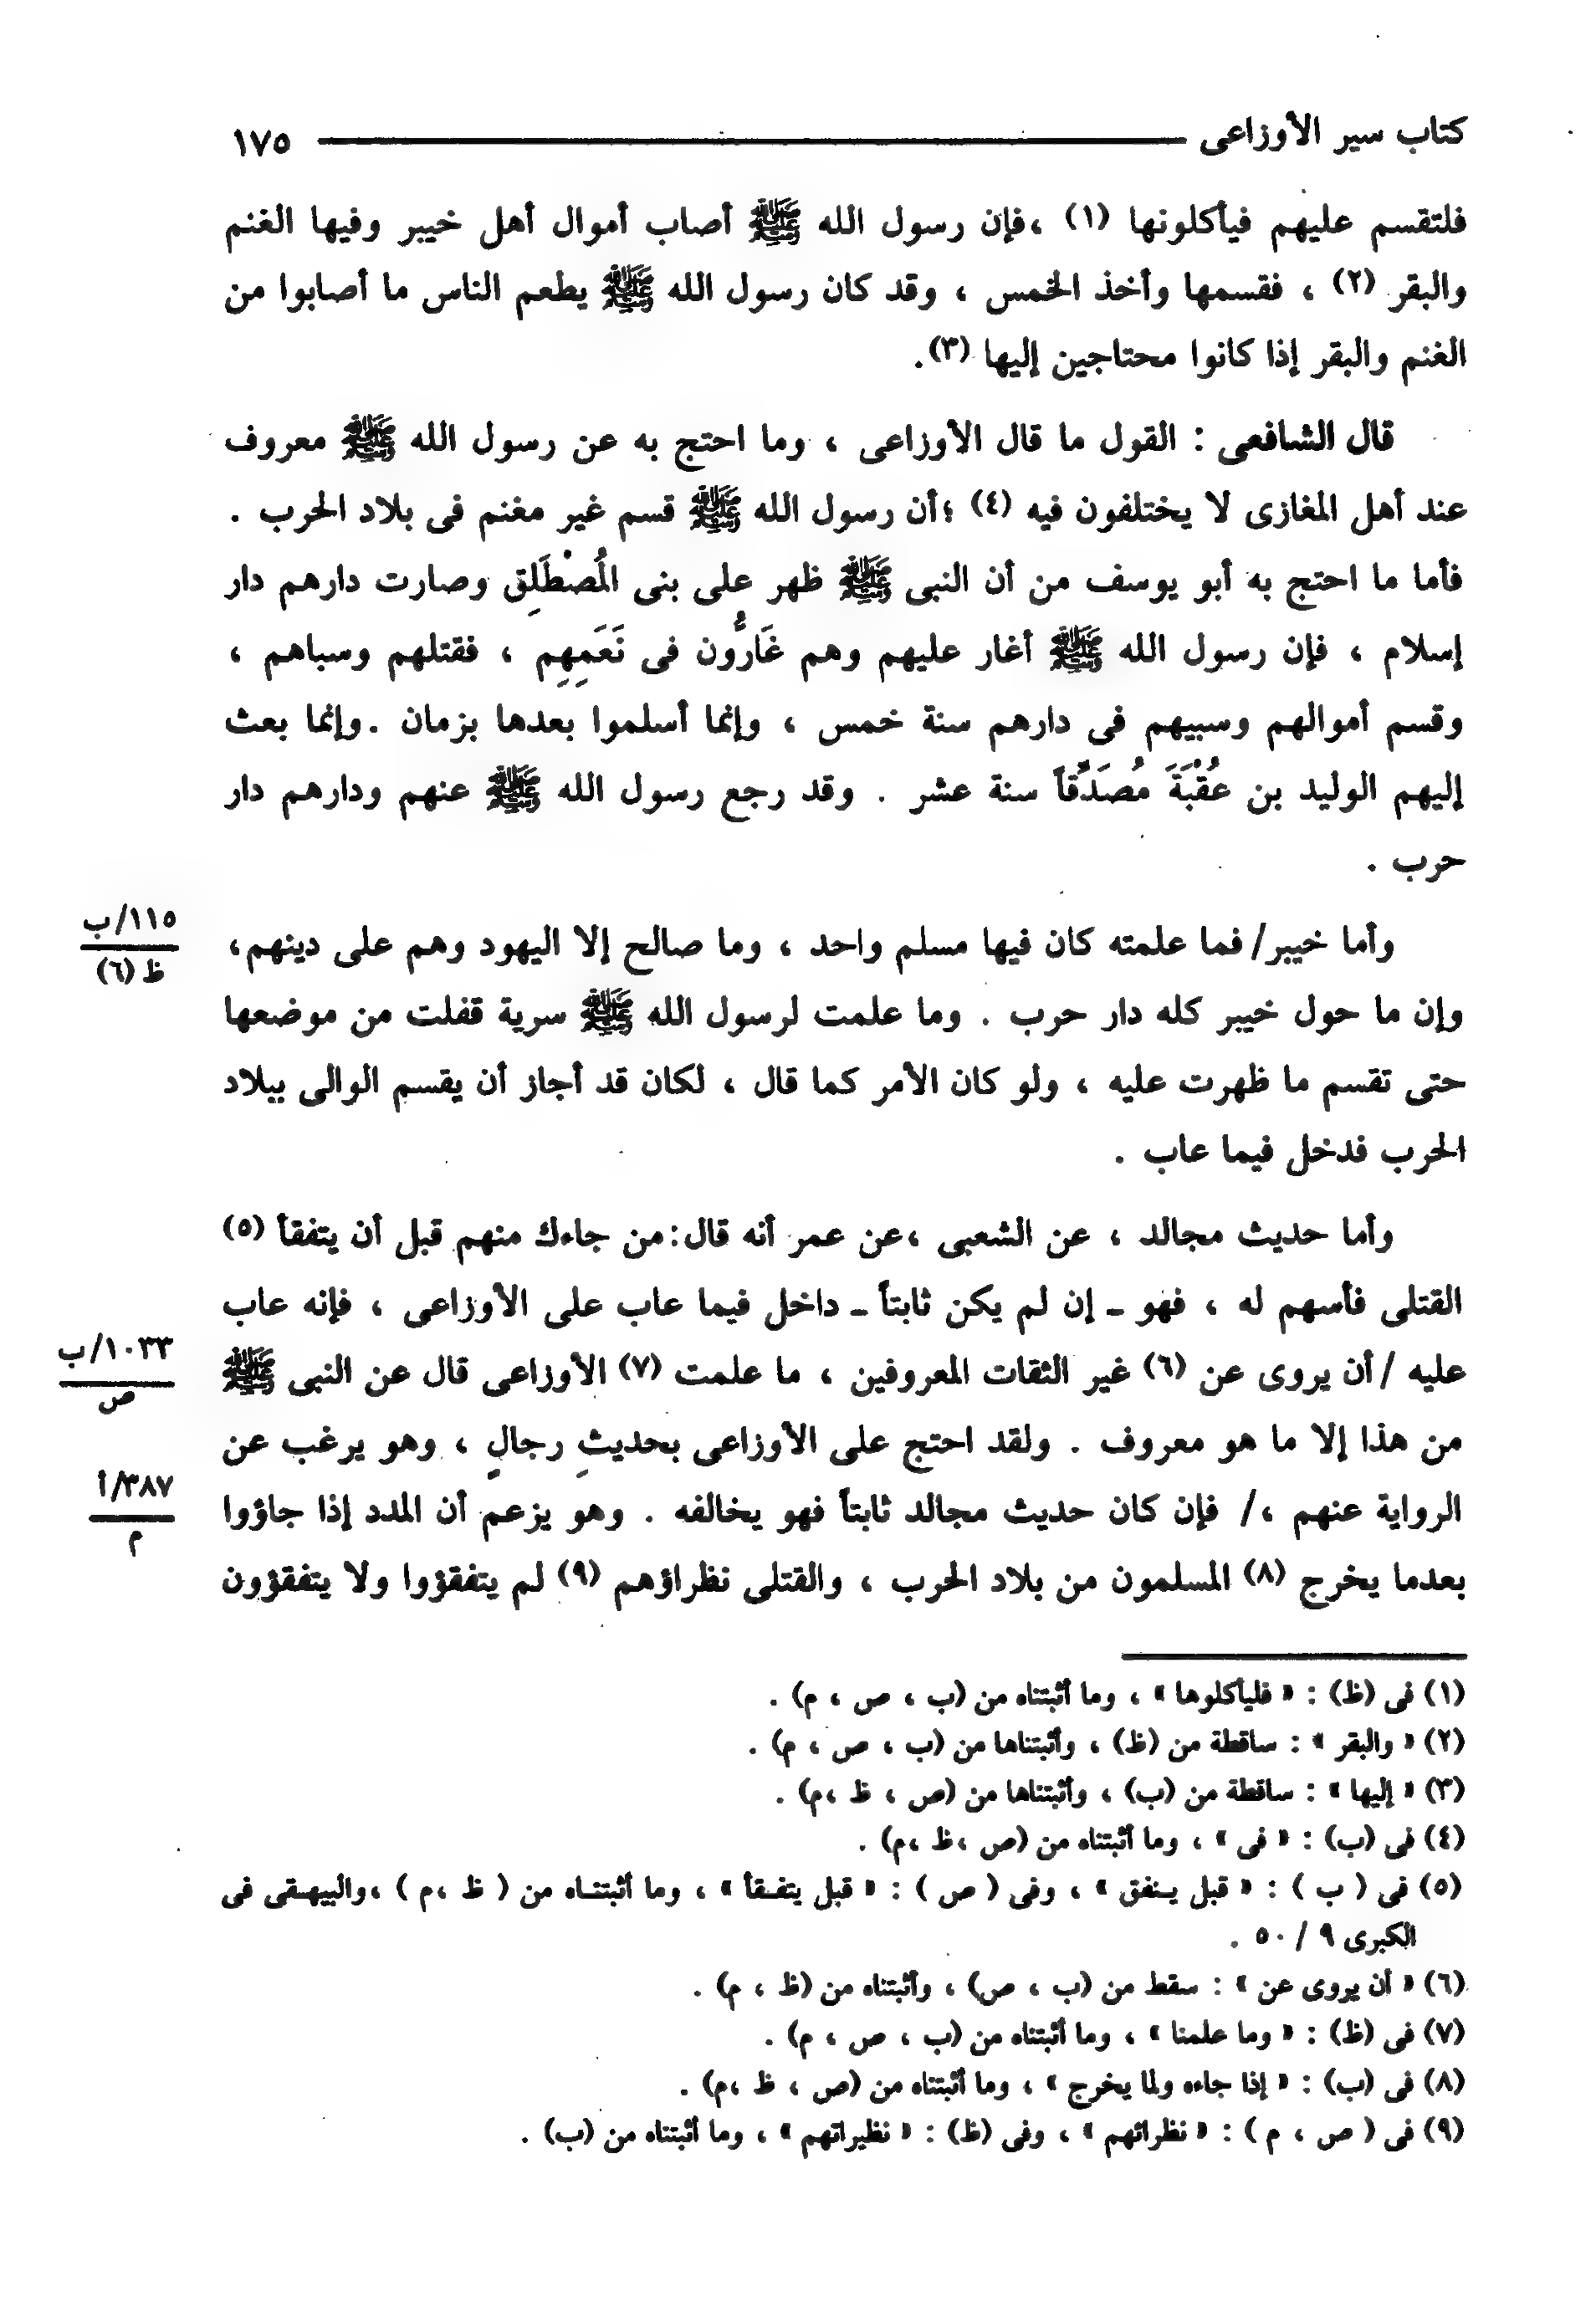 كتاب سير الأوزاعى ١٧٥
فلتقسم عليهم فيأكلونها (١) ،فإن رسول الله ﷺ أصاب أموال أهل خيبر وفيها الغنم
والبقر (٢) ، فقسمها وأخذ الخمس ، وقد كان رسول الله ﷺ يطعم الناس ما أصابوا من
الغنم والبقر إذا كانوا محتاجين إليها (٣).
قال الشافعى : القول ما قال الأوزاعى ، وما احتج به عن رسول الله ﷺ معروف
عند أهل المغازى لا يختلفون فيه (٤) ؛أن رسول الله ﷺ قسم غير مغنم فى بلاد الحرب .
فأما ما احتج به أبو يوسف من أن النبى ﷺ ظهر على بنى المُصْطَلِق وصارت دارهم دار
إسلام ، فإن رسول الله ﷺ أغار عليهم وهم غَارُّون فى نَعَمِهِم ، فقتلهم وسباهم ،
وقسم أموالهم وسبيهم فى دارهم سنة خمس ، وإنما أسلموا بعدها بزمان .وإنما بعث
إليهم الوليد بن عُقْبَةَ مُصَدِّقاً سنة عشر . وقد رجع رسول الله ﷺ عنهم ودارهم دار
حرب .
١١٥/ب
ظ (٦)
وأما خيبر/ فما علمته كان فيها مسلم واحد ، وما صالح إلا اليهود وهم على دينهم،
وإن ما حول خيبر كله دار حرب . وما علمت لرسول الله ﷺ سرية قفلت من موضعها
حتى تقسم ما ظهرت عليه ، ولو كان الأمر كما قال ، لكان قد أجاز أن يقسم الوالى ببلاد
الحرب فدخل فيما عاب .
وأما حديث مجالد ، عن الشعبى ،عن عمر أنه قال:من جاءك منهم قبل أن يتفقأ (٥)
القتلى فأسهم له ، فهو ـ إن لم يكن ثابتاً ـ داخل فيما عاب على الأوزاعى ، فإنه عاب
١٠٣٣/ب
ص
عليه /أن يروى عن (٦) غير الثقات المعروفين ، ما علمت (٧) الأوزاعى قال عن النبى ﷺ
من هذا إلا ما هو معروف . ولقد احتج على الأوزاعى بحديثِ رجالٍ ، وهو يرغب عن
٣٨٧/أ
م
الرواية عنهم ،/ فإن كان حديث مجالد ثابتاً فهو يخالفه . وهو يزعم أن المدد إذا جاؤوا
بعدما يخرج (٨) المسلمون من بلاد الحرب ، والقتلى نظراؤهم (٩) لم يتفقؤوا ولا يتفقؤون
(١) فى (ظ) : « فليأكلوها » ، وما أثبتناه من (ب ، ص ، م) .
(٢) « والبقر » : ساقطة من (ظ) ، وأثبتناها من (ب ، ص ، م) .
(٣) « إليها » : ساقطة من (ب) ، وأثبتناها من (ص ، ظ ،م) .
(٤) فى (ب) : « فى » ، وما أثبتناه من (ص ،ظ ،م) .
(٥) فى ( ب ) : « قبل ينفق » ، وفى ( ص ) : « قبل يتفقأ » ، وما أثبتناه من ( ظ ،م ) ،والبيهقى فى
الكبرى ٩ / ٥٠ .
(٦) « أن يروى عن » : سقط من (ب ، ص) ، وأثبتناه من (ظ ، م) .
(٧) فى (ظ) : « وما علمنا » ، وما أثبتناه من (ب ، ص ، م) .
(٨) فى (ب) : « إذا جاءه ولما يخرج » ، وما أثبتناه من (ص ، ظ ،م) .
(٩) فى ( ص ، م ) : « نظرائهم » ، وفى (ظ) : « نظيراتهم » ، وما أثبتناه من (ب) .